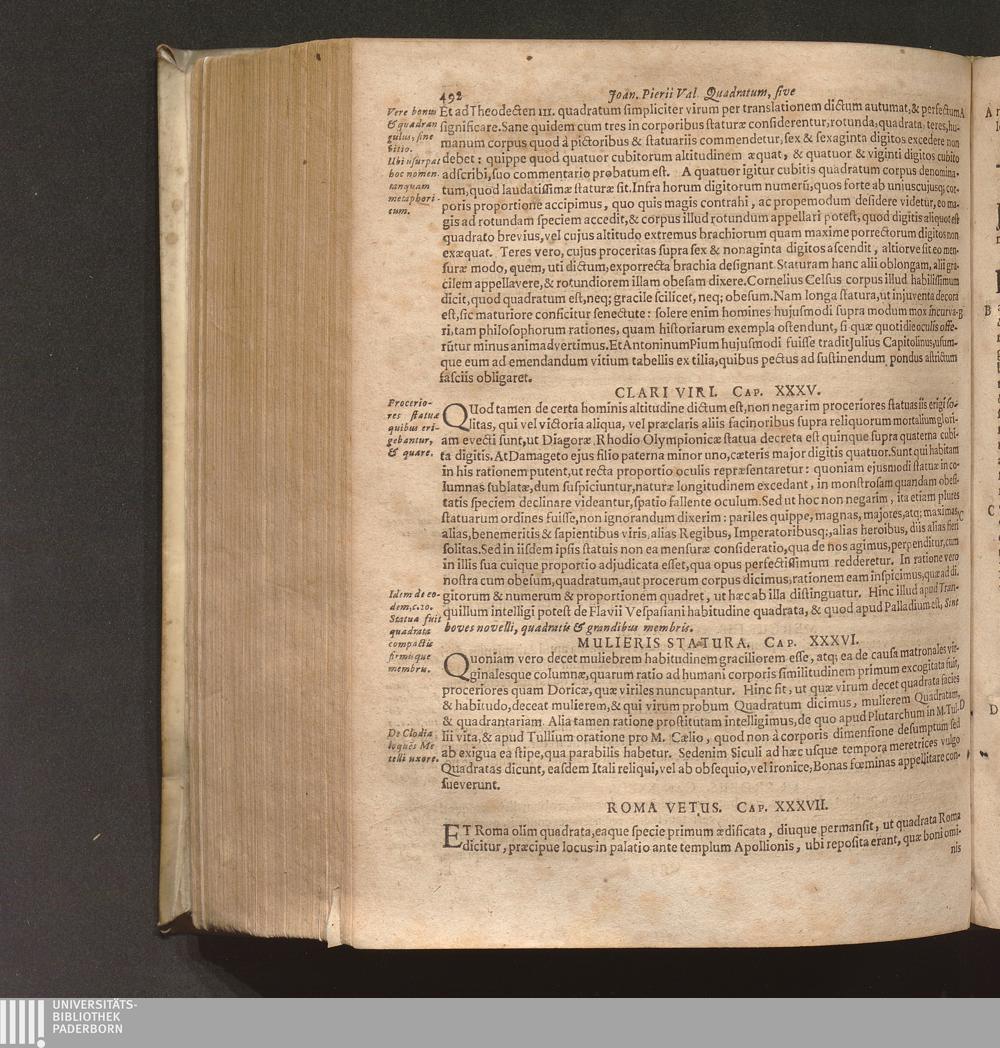 492
Joan. Pierii Val. Quadratum, ſive
Vere bonus
& quadran
gulus, ſine
vitio.
Ubi uſurpat
hoc nomen
tanquam
metaphori-
cum.
Et ad Theodecten III. quadratum ſimpliciter virum per translationem dictum autumat, & perfectum A
ſignificare. Sane quidem cum tres in corporibus ſtaturæ conſiderentur, rotunda, quadrata, teres, hu-
manum corpus quod à pictoribus & ſtatuariis commendetur, ſex & ſexaginta digitos excedere non
debet: quippe quod quatuor cubitorum altitudinem æquat, & quatuor & viginti digitos cubito
adſcribi, ſuo commentario probatum eſt. A quatuor igitur cubitis quadratum corpus denomina-
tum, quod laudatiſſimæ ſtaturæ ſit. Infra horum digitorum numerū, quos forte ab uniuscujusq; cor-
poris proportione accipimus, quo quis magis contrahi, ac propemodum deſidere videtur, eo ma-
gis ad rotundam ſpeciem accedit, & corpus illud rotundum appellari poteſt, quod digitis aliquot eſt
quadrato brevius, vel cujus altitudo extremus brachiorum quam maxime porrectorum digitos non
exæquat. Teres vero, cujus proceritas ſupra ſex & nonaginta digitos aſcendit, altiorve ſit eo men-
ſuræ modo, quem, uti dictum, exporrecta brachia deſignant. Staturam hanc alii oblongam, alii gra-
cilem appellavere, & rotundiorem illam obeſam dixere. Cornelius Celſus corpus illud habiliſſimum
dicit, quod quadratum eſt, neq; gracile ſcilicet, neq; obeſum. Nam longa ſtatura, ut in juventa decora
eſt, ſic maturiore conficitur ſenectute: ſolere enim homines hujuſmodi ſupra modum mox incurva- B
ri, tam philoſophorum rationes, quam hiſtoriarum exempla oſtendunt, ſi quæ quotidie oculis offe-
rūtur minus animadvertimus. Et Antoninum Pium hujuſmodi fuiſſe tradit Julius Capitolinus, uſum-
que eum ad emendandum vitium tabellis ex tilia, quibus pectus ad ſuſtinendum pondus aſtrictum
faſciis obligaret.
CLARI VIRI. CAP. XXXV.
Procerio-
res ſtatuæ
quibus eri-
gebantur,
& quare.
QUod tamen de certa hominis altitudine dictum eſt, non negarim proceriores ſtatuas iis erigi ſo-
litas, qui vel victoria aliqua, vel præclaris aliis facinoribus ſupra reliquorum mortalium glori-
am evecti ſunt, ut Diagoræ Rhodio Olympionicæ ſtatua decreta eſt quinque ſupra quaterna cubi-
ta digitis. At Damageto ejus filio paterna minor uno, cæteris major digitis quatuor. Sunt qui habitam
in his rationem putent, ut recta proportio oculis repræſentaretur: quoniam ejusmodi ſtatuæ in co-
lumnas ſublatæ, dum ſuſpiciuntur, naturæ longitudinem excedant, in monſtroſam quandam obeſi-
tatis ſpeciem declinare videantur, ſpatio fallente oculum. Sed ut hoc non negarim, ita etiam plures
ſtatuarum ordines fuiſſe, non ignorandum dixerim: pariles quippe, magnas, majores, atq; maximas, C
alias, benemeritis & ſapientibus viris, alias Regibus, Imperatoribusq;, alias heroibus, diis alias fieri
ſolitas. Sed in iiſdem ipſis ſtatuis non ea menſuræ conſideratio, qua de nos agimus, perpenditur, cum
in illis ſua cuique proportio adjudicata eſſet, qua opus perfectiſſimum redderetur. In ratione vero
noſtra cum obeſum, quadratum, aut procerum corpus dicimus, rationem eam inſpicimus, quæ ad di-
Idem de eo-
dem, c. 20.
Statua fuit
quadrata
compactis
firmisque
membris.
gitorum & numerum & proportionem quadret, ut hæc ab illa diſtinguatur. Hinc illud apud Tran-
quillum intelligi poteſt de Flavii Veſpaſiani habitudine quadrata, & quod apud Palladium eſt, Sint
boves novelli, quadratis & grandibus membris.
MULIERIS STATURA. CAP. XXXVI.
Quoniam vero decet muliebrem habitudinem graciliorem eſſe, atq; ea de cauſa matronales vir-
ginalesque columnæ, quarum ratio ad humani corporis ſimilitudinem primum excogitata fuit,
proceriores quam Doricæ, quæ viriles nuncupantur. Hinc fit, ut quæ virum decet quadrata facies
& habitudo, deceat mulierem, & qui virum probum Quadratum dicimus, mulierem Quadratam,
& quadrantariam. Alia tamen ratione proſtitutam intelligimus, de quo apud Plutarchum in M. Tul- D
De Clodia
loquēs Me-
telli uxore.
lii vita, & apud Tullium oratione pro M. Cælio, quod non à corporis dimenſione deſumptum ſed
ab exigua ea ſtipe, qua parabilis habetur. Sed enim Siculi ad hæc uſque tempora meretrices vulgo
Quadratas dicunt, eaſdem Itali reliqui, vel ab obſequio, vel ironice, Bonas fœminas appellitare con-
ſueverunt.
ROMA VETUS. CAP. XXXVII.
ET Roma olim quadrata, eaque ſpecie primum ædificata, diuque permanſit, ut quadrata Roma
dicitur, præcipue locus in palatio ante templum Apollionis, ubi repoſita erant, quæ boni omi-
nis
A
B
C
D
UNIVERSITÄTS-
BIBLIOTHEK
PADERBORN